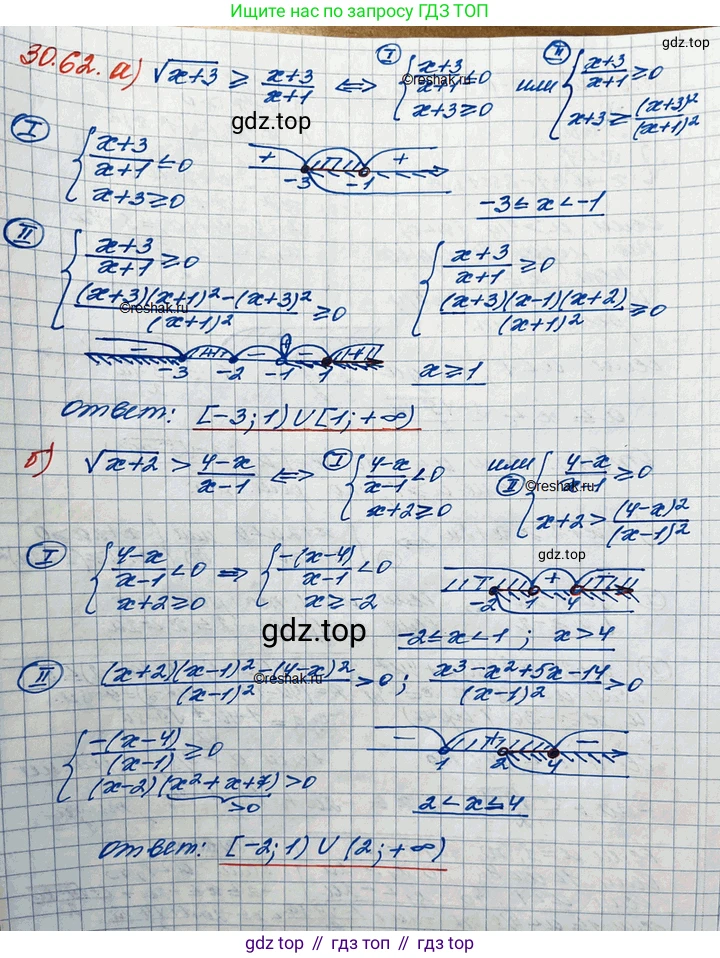 Ищите нас по запросу ГДЗ ТОП
30.62. а) √(x+3) ≥ (x+3)/(x+1) ⇔ I { (x+3)/(x+1) ≤ 0 ; x+3 ≥ 0 или II { (x+3)/(x+1) ≥ 0 ; x+3 ≥ (x+3)²/(x+1)²
©reshak.ru
gdz.top
gdz.top
I { (x+3)/(x+1) ≤ 0 ; x+3 ≥ 0
+ + -3 -1
-3 ≤ x < -1
II { (x+3)/(x+1) ≥ 0 ; ((x+3)(x+1)² - (x+3)²)/(x+1)² ≥ 0
{ (x+3)/(x+1) ≥ 0 ; (x+3)(x-1)(x+2)/(x+1)² ≥ 0
©reshak.ru
-3 -2 -1 1
x ≥ 1
ответ: [-3; 1) ∪ [1; +∞)
б) √(x+2) > (4-x)/(x-1) ⇔ I { (4-x)/(x-1) < 0 ; x+2 ≥ 0 или II { (4-x)/(x-1) ≥ 0 ; x+2 > (4-x)²/(x-1)²
©reshak.ru
gdz.top
I { (4-x)/(x-1) < 0 ; x+2 ≥ 0 ⇒ { -(x-4)/(x-1) < 0 ; x ≥ -2
-2 1 + 4
gdz.top
-2 ≤ x < 1 ; x > 4
II ((x+2)(x-1)² - (4-x)²)/(x-1)² > 0 ; (x³ - x² + 5x - 14)/(x-1)² > 0
©reshak.ru
{ -(x-4)/(x-1) ≥ 0 ; (x-2)(x² + x + 7) > 0
> 0
− 1 2 + 4 −
2 < x ≤ 4
ответ: [-2; 1) ∪ (2; +∞)
gdz.top // гдз.top // гдз.топ